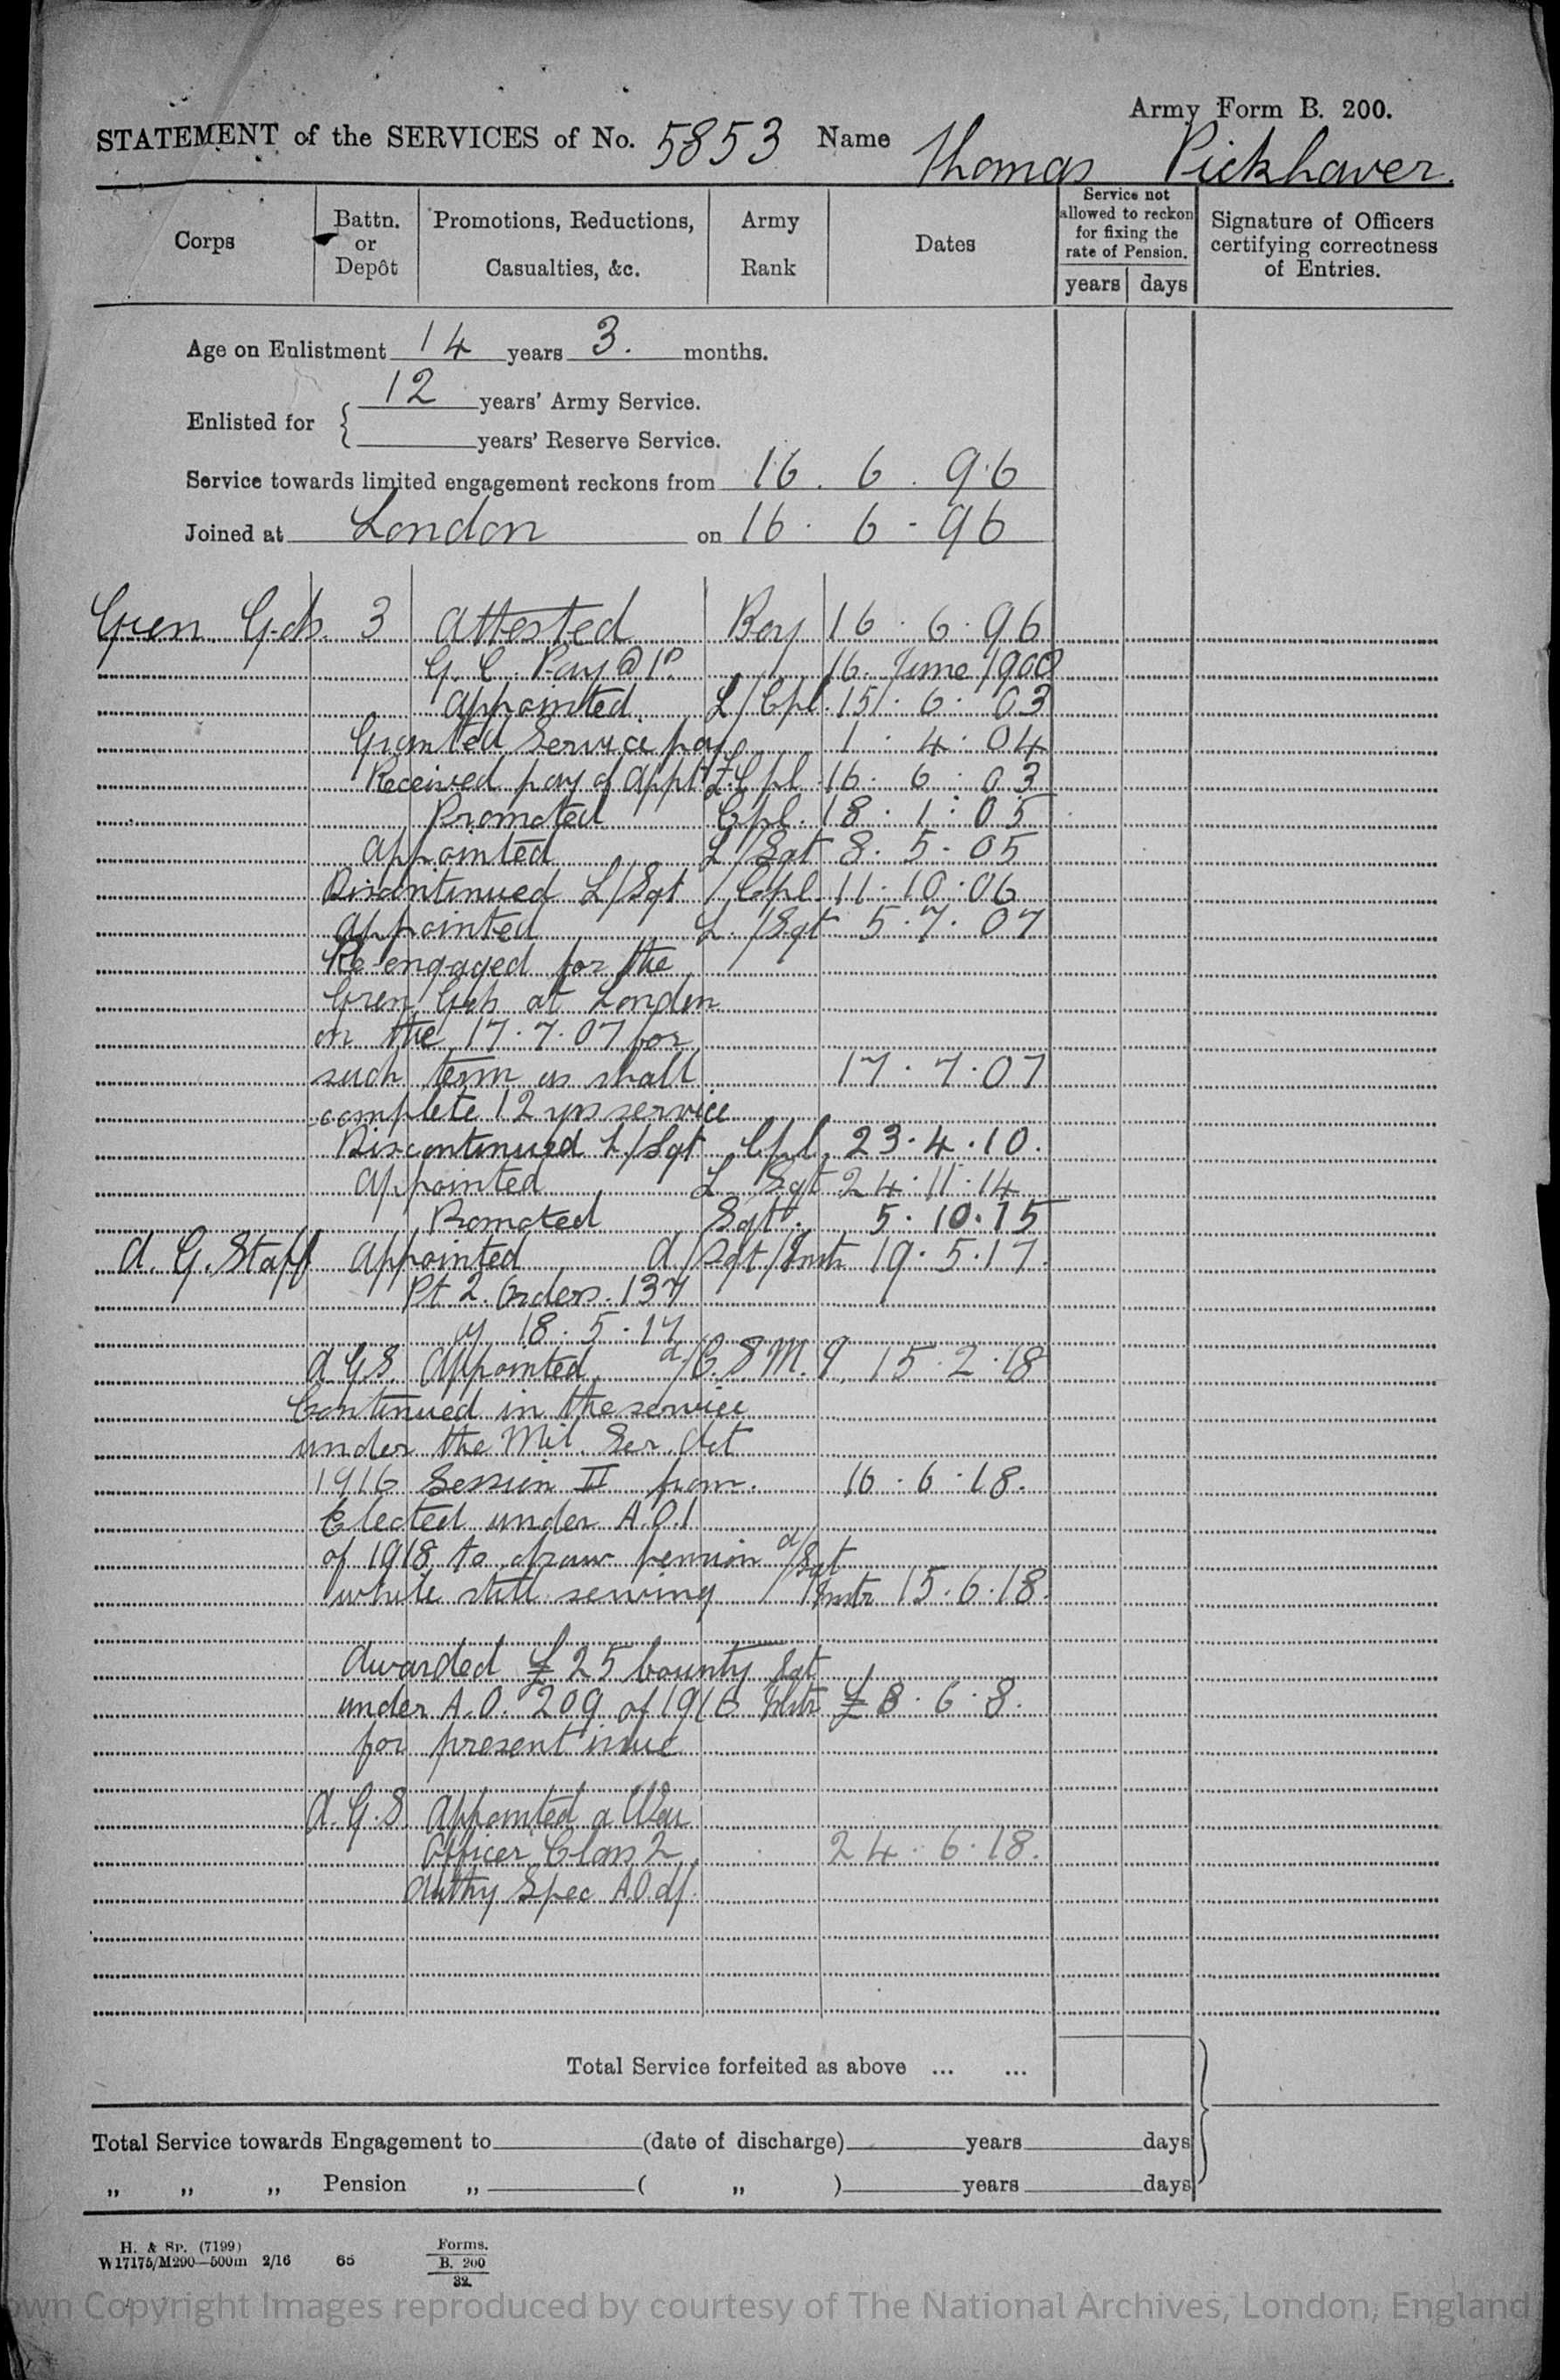 Army Form B. 200.
STATEMENT of the SERVICES of No. 5853 Name Thomas Pickhaver.
Corps
Battn. or Depôt
Promotions, Reductions, Casualties, &c.
Army Rank
Dates
Service not allowed to reckon for fixing the rate of Pension.
years days
Signature of Officers certifying correctness of Entries.
Age on Enlistment 14 years 3. months.
Enlisted for { 12 years' Army Service.
years' Reserve Service.
Service towards limited engagement reckons from 16. 6. 96
Joined at London on 16. 6 - 96
Gren Gds. 3 Attested Boy 16. 6. 96
G. C. Pay @ 1D. 16. June 1900
Appointed L/Cpl. 15. 6. 03
Granted Service pay 1. 4. 04
Received pay of Appt L.Cpl 16. 6. 03
Promoted Cpl. 18. 1. 05
Appointed L/Sgt 8. 5. 05
Discontinued L/Sgt / Cpl. 11. 10. 06
Appointed L./Sgt 5. 7. 07
Re-engaged for the
Gren Gds at London
on the 17. 7. 07 for
such term as shall 17. 7. 07
complete 12 yrs service
Discontinued L/Sgt Cpl. 23. 4. 10.
Appointed L Sgt 24. 11. 14
Promoted Sgt. 5. 10. 15
A. G. Staff Appointed A/Sgt/Instr 19. 5. 17.
Pt 2. Orders. 137
of 18. 5. 17
A.G.S. Appointed A/C. S. M. I. 15. 2. 18
Continued in the service
under the Mil. Ser. Act
1916 Session II from. 16. 6. 18.
Elected under A.O.1
of 1918 to draw pension A/Sgt
while still serving /Instr 15. 6. 18.
Awarded £25 bounty Sgt
under A.O. 209 of 1916 Instr £8. 6. 8.
for present issue
A. G. S. Appointed a War
Officer Class 2 24. 6. 18.
Authy Spec A.O. d/.
Total Service forfeited as above ... ...
Total Service towards Engagement to (date of discharge) years days
„ „ „ Pension „ ( „ ) years days
H. & Sp. (7199)
W17175/M290—500m 2/16 65
Forms.
B. 200
32
own Copyright Images reproduced by courtesy of The National Archives, London, England